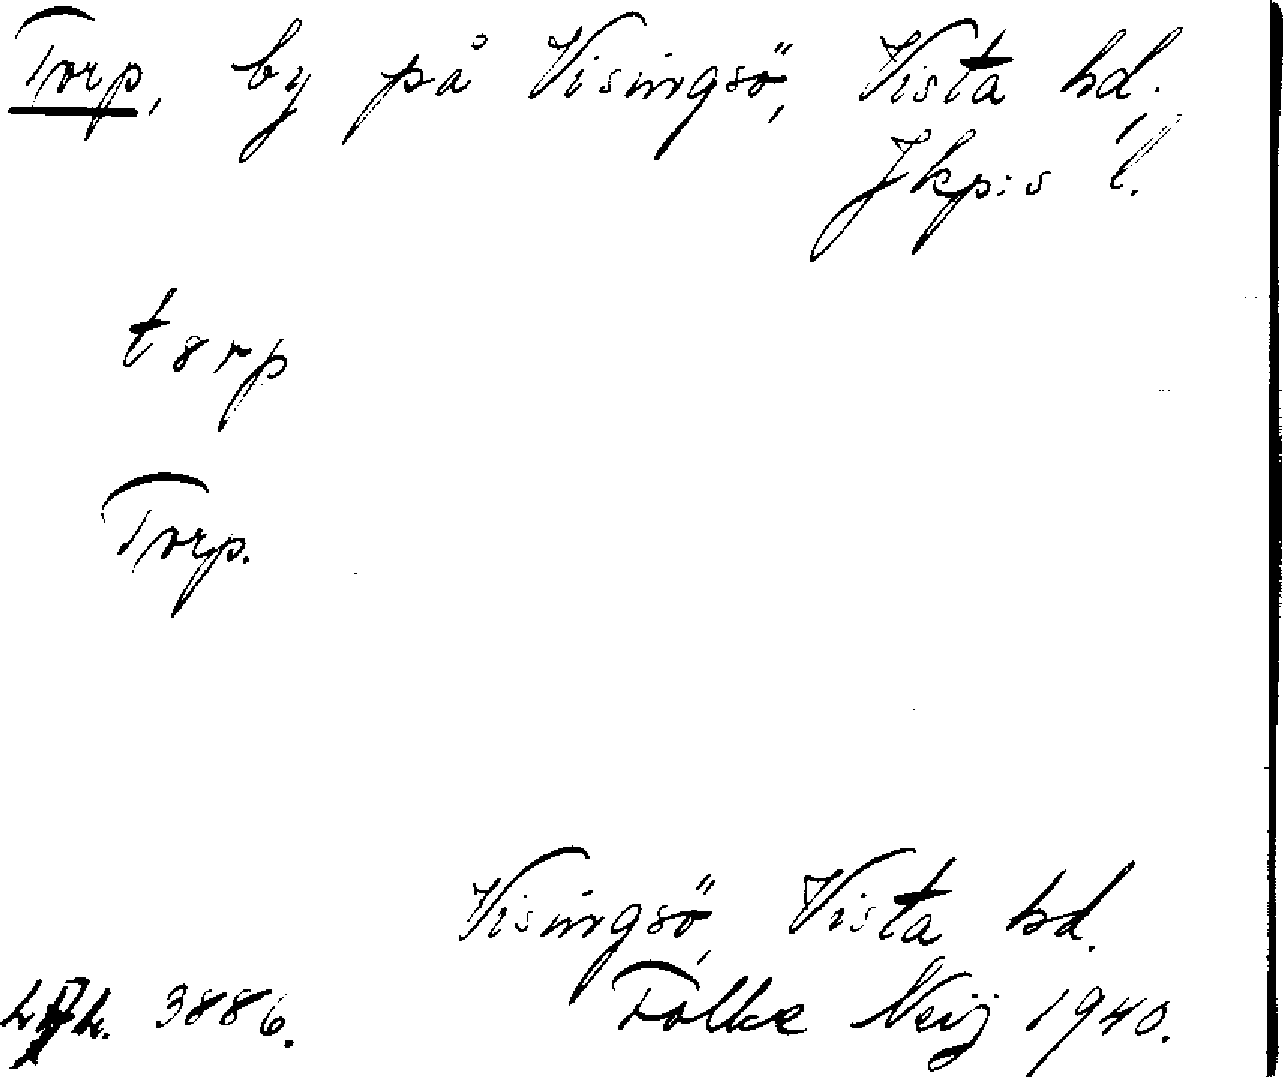 Torp, by på Visingsö, Vista hd.
Jkp:s l.
t8rp
Torp.
Visingsö, Vista hd.
3886. Folke Neij 1940.